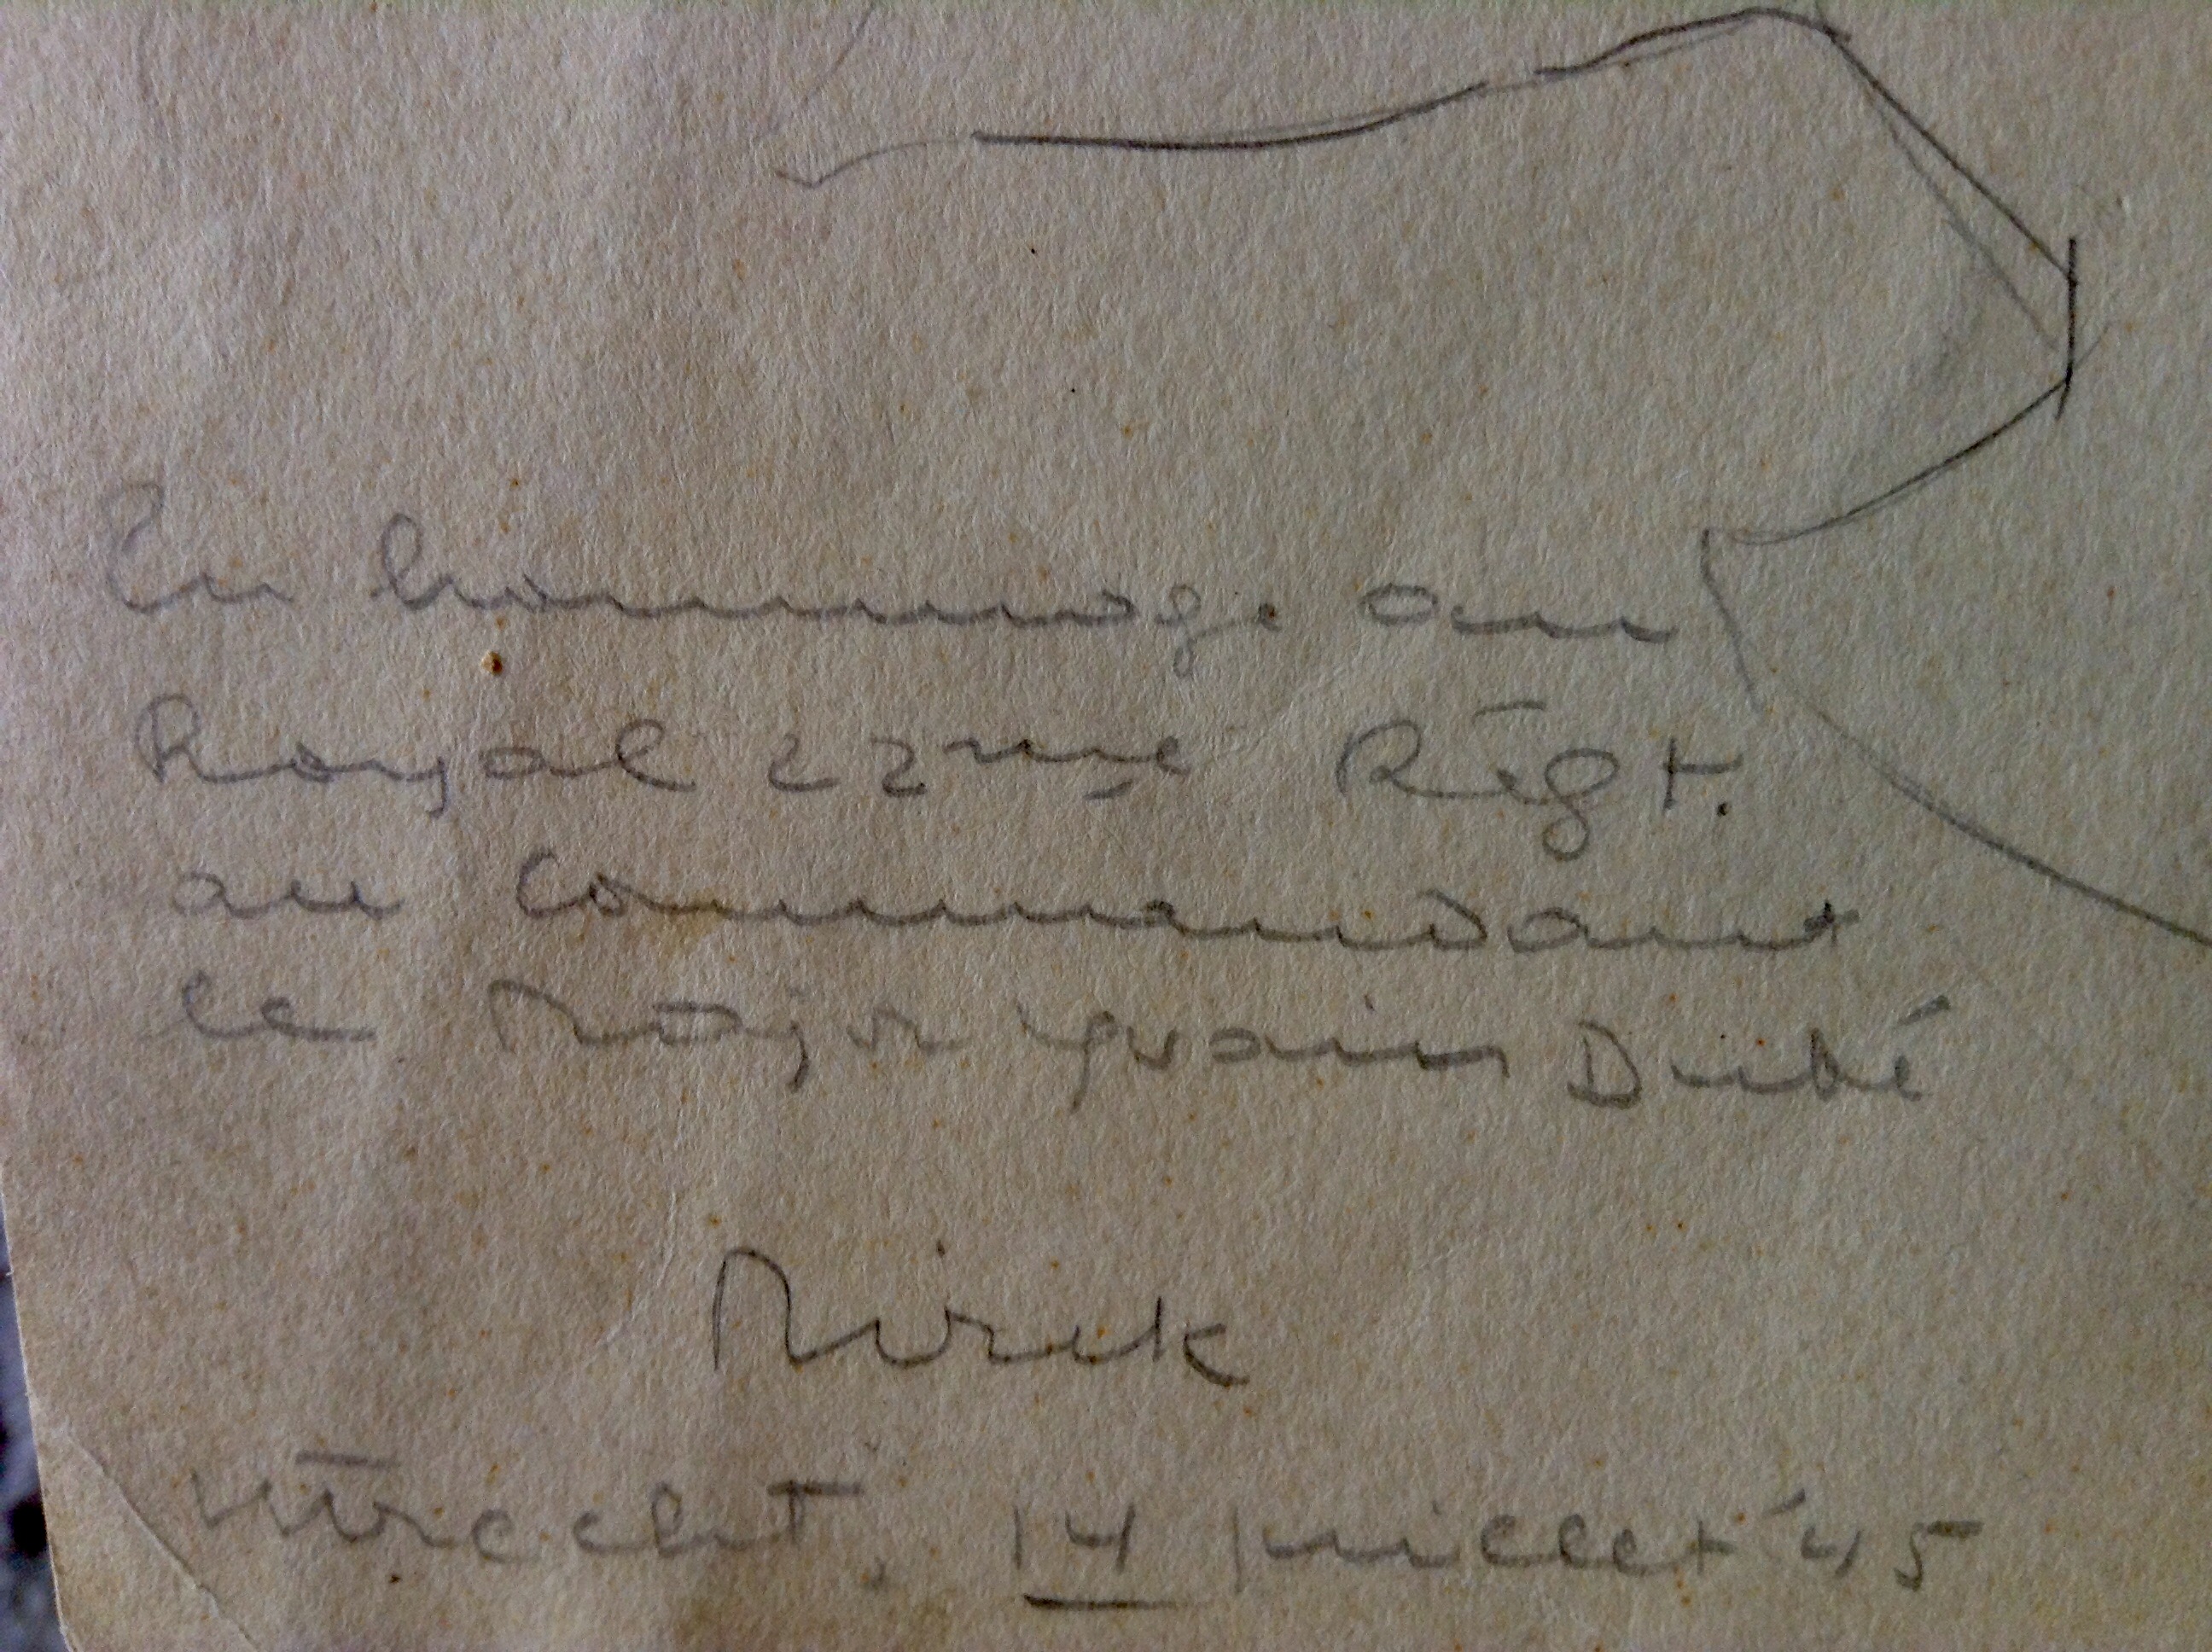 En hommage au
Royal 22me Régt.
au Commandant
le Major Yvain Dubé
Mirek
Utrecht, 14 juillet '45